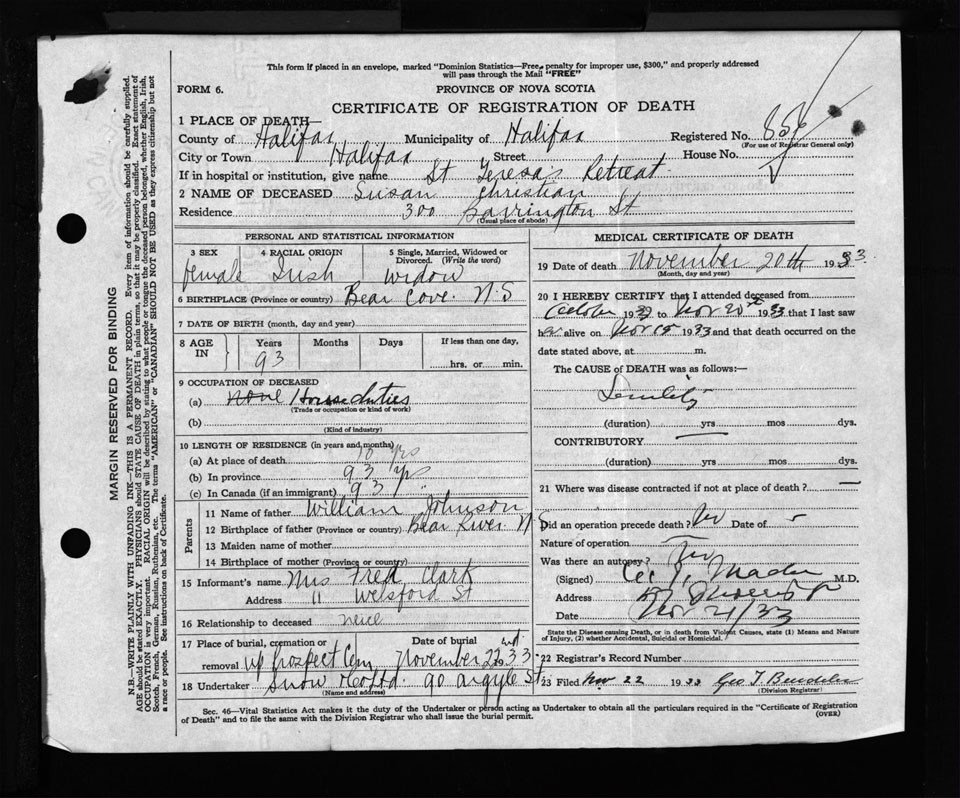 This form if placed in an envelope, marked "Dominion Statistics—Free, penalty for improper use, $300," and properly addressed
will pass through the Mail "FREE"
FORM 6. PROVINCE OF NOVA SCOTIA
CERTIFICATE OF REGISTRATION OF DEATH
1 PLACE OF DEATH—
County of Halifax Municipality of Halifax Registered No.
(For use of Registrar General only)
City or Town Halifax Street House No.
If in hospital or institution, give name St Teresa's Retreat
2 NAME OF DECEASED Susan Christian
Residence 300 Barrington St
(Usual place of abode)
PERSONAL AND STATISTICAL INFORMATION
3 SEX 4 RACIAL ORIGIN 5 Single, Married, Widowed or Divorced. (Write the word)
female Irish Widow
6 BIRTHPLACE (Province or country) Bear Cove. N.S
7 DATE OF BIRTH (month, day and year)
8 AGE IN Years Months Days If less than one day,
93 hrs. or min.
9 OCCUPATION OF DECEASED
(a) none House duties
(Trade or occupation or kind of work)
(b)
(Kind of industry)
10 LENGTH OF RESIDENCE (in years and months)
(a) At place of death 10 yrs
(b) In province 93 yrs
(c) In Canada (if an immigrant) 93 yrs
Parents
11 Name of father William Johnson
12 Birthplace of father (Province or country) Bear River N S
13 Maiden name of mother
14 Birthplace of mother (Province or country)
15 Informant's name Mrs Fred Clark
Address 11 Welsford St
16 Relationship to deceased neice
17 Place of burial, cremation or removal up Prospect Cem Date of burial November 22nd 1933
18 Undertaker Snow & Co Ltd 90 Argyle St
(Name and address)
MEDICAL CERTIFICATE OF DEATH
19 Date of death November 20th 1933
(Month, day and year)
20 I HEREBY CERTIFY that I attended deceased from
October 1933 to Nov 20th 1933 that I last saw
her alive on Nov 15 1933 and that death occurred on the
date stated above, at m.
The CAUSE of DEATH was as follows:—
Senility
(duration) yrs mos dys.
CONTRIBUTORY
(duration) yrs. mos dys.
21 Where was disease contracted if not at place of death?
Did an operation precede death? No Date of
Nature of operation
Was there an autopsy? No
(Signed) Mader M.D.
Address
Date Nov 21/33
State the Disease causing Death, or in death from Violent Causes, state (1) Means and Nature
of Injury, (2) whether Accidental, Suicidal or Homicidal.
22 Registrar's Record Number
23 Filed Nov 22 1933 Geo T
(Division Registrar)
Sec. 46—Vital Statistics Act makes it the duty of the Undertaker or person acting as Undertaker to obtain all the particulars required in the "Certificate of Registration
of Death" and to file the same with the Division Registrar who shall issue the burial permit. (OVER)
MARGIN RESERVED FOR BINDING
N.B.—WRITE PLAINLY WITH UNFADING INK—THIS IS A PERMANENT RECORD. Every item of information should be carefully supplied.
AGE should be stated EXACTLY. PHYSICIANS should STATE CAUSE OF DEATH in plain terms, so that it may be properly classified. Exact statement of
OCCUPATION is very important. RACIAL ORIGIN will be described by stating to what people or tongue the deceased person belonged, whether English, Irish,
Scotch, French, German, Russian, Ruthenian, etc. The terms "AMERICAN" or "CANADIAN" SHOULD NOT BE USED as they express citizenship but not
a race or people. See instructions on back of Certificate.